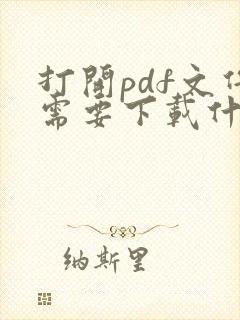 打開pdf文件
需要下載什
纳斯里